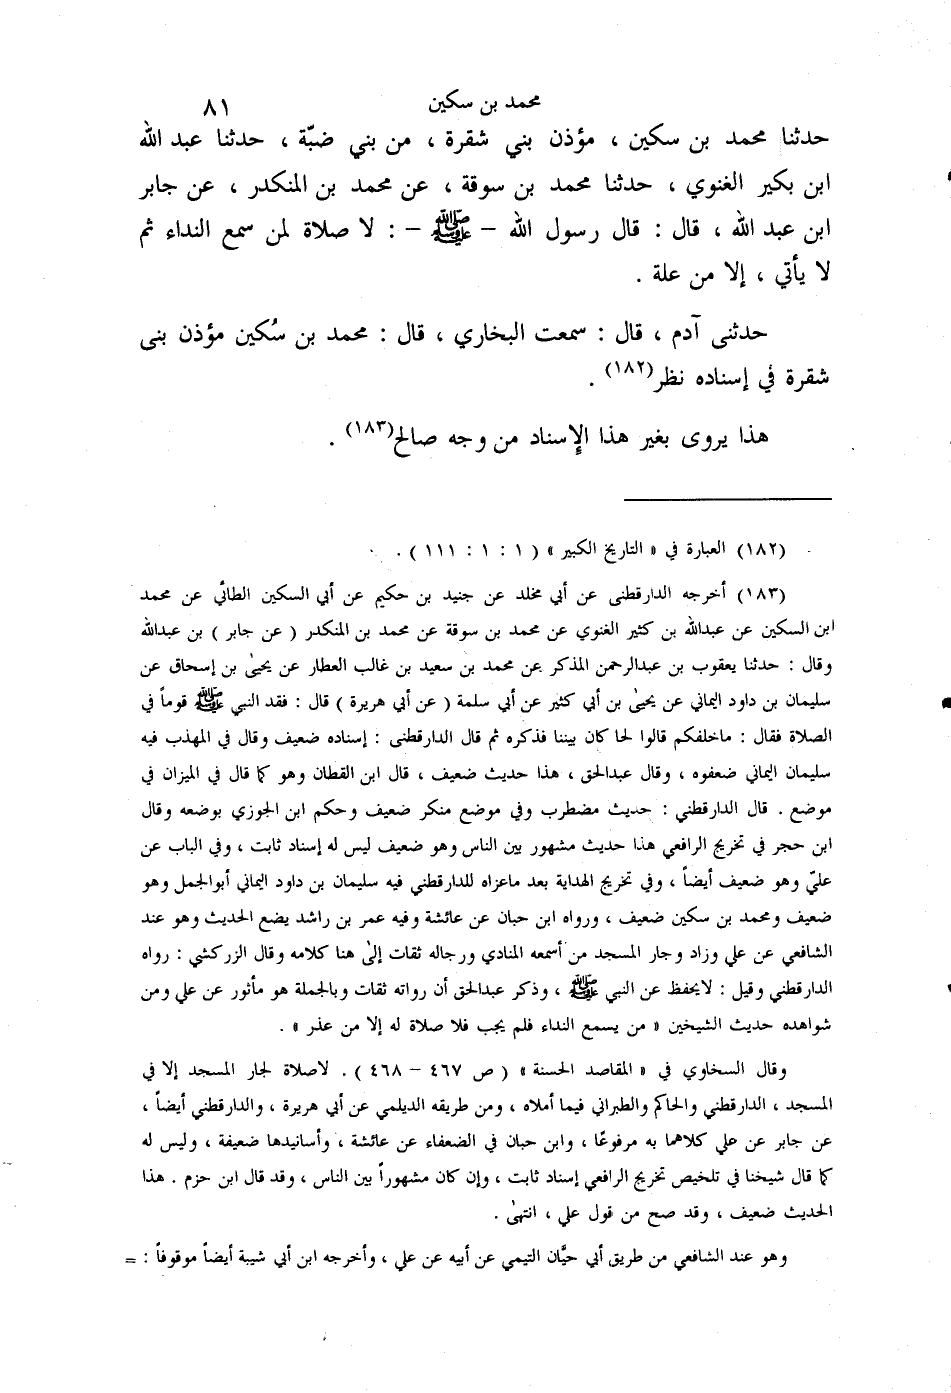 محمد بن سكين ٨١
حدثنا محمد بن سكين ، مؤذن بني شقرة ، من بني ضبّة ، حدثنا عبد الله
ابن بكير الغنوي ، حدثنا محمد بن سوقة ، عن محمد بن المنكدر ، عن جابر
ابن عبد الله ، قال : قال رسول الله – ﷺ – : لا صلاة لمن سمع النداء ثم
لا يأتي ، إلا من علة .
حدثنى آدم ، قال : سمعت البخاري ، قال : محمد بن سُكين مؤذن بنى
شقرة في إسناده نظر(١٨٢) .
هذا يروى بغير هذا الإسناد من وجه صالح(١٨٣) .
(١٨٢) العبارة في « التاريخ الكبير » ( ١ : ١ : ١١١ ) .
(١٨٣) أخرجه الدارقطنى عن أبي مخلد عن جنيد بن حكيم عن أبي السكين الطائي عن محمد
ابن السكين عن عبدالله بن كثير الغنوي عن محمد بن سوقة عن محمد بن المنكدر ( عن جابر ) بن عبدالله
وقال : حدثنا يعقوب بن عبدالرحمن المذكر عن محمد بن سعيد بن غالب العطار عن يحيىٰ بن إسحاق عن
سليمان بن داود اليماني عن يحيىٰ بن أبي كثير عن أبي سلمة ( عن أبي هريرة ) قال : فقد النبي ﷺ قوماً في
الصلاة فقال : ماخلفكم قالوا لحا كان بيننا فذكره ثم قال الدارقطنى : إسناده ضعيف وقال في المهذب فيه
سليمان اليماني ضعفوه ، وقال عبدالحق ، هذا حديث ضعيف ، قال ابن القطان وهو كما قال في الميزان في
موضع . قال الدارقطني : حديث مضطرب وفي موضع منكر ضعيف وحكم ابن الجوزي بوضعه وقال
ابن حجر في تخريج الرافعي هذا حديث مشهور بين الناس وهو ضعيف ليس له إسناد ثابت ، وفي الباب عن
عليّ وهو ضعيف أيضاً ، وفي تخريج الهداية بعد ماعزاه للدارقطني فيه سليمان بن داود اليماني أبوالجمل وهو
ضعيف ومحمد بن سكين ضعيف ، ورواه ابن حبان عن عائشة وفيه عمر بن راشد يضع الحديث وهو عند
الشافعي عن علي وزاد وجار المسجد من أسمعه المنادي ورجاله ثقات إلىٰ هنا كلامه وقال الزركشي : رواه
الدارقطني وقيل : لايحفظ عن النبي ﷺ ، وذكر عبدالحق أن رواته ثقات وبالجملة هو مأثور عن علي ومن
شواهده حديث الشيخين « من يسمع النداء فلم يجب فلا صلاة له إلا من عذر » .
وقال السخاوي في « المقاصد الحسنة » ( ص ٤٦٧ – ٤٦٨ ) . لاصلاة لجار المسجد إلا في
المسجد ، الدارقطني والحاكم والطبراني فيما أملاه ، ومن طريقه الديلمي عن أبي هريرة ، والدارقطني أيضاً ،
عن جابر عن علي كلاهما به مرفوعًا ، وابن حبان في الضعفاء عن عائشة ، وأسانيدها ضعيفة ، وليس له
كما قال شيخنا في تلخيص تخريج الرافعي إسناد ثابت ، وإن كان مشهوراً بين الناس ، وقد قال ابن حزم . هذا
الحديث ضعيف ، وقد صح من قول علي ، انتهىٰ .
وهو عند الشافعي من طريق أبي حيَّان التيمي عن أبيه عن علي ، وأخرجه ابن أبي شيبة أيضاً موقوفاً : =